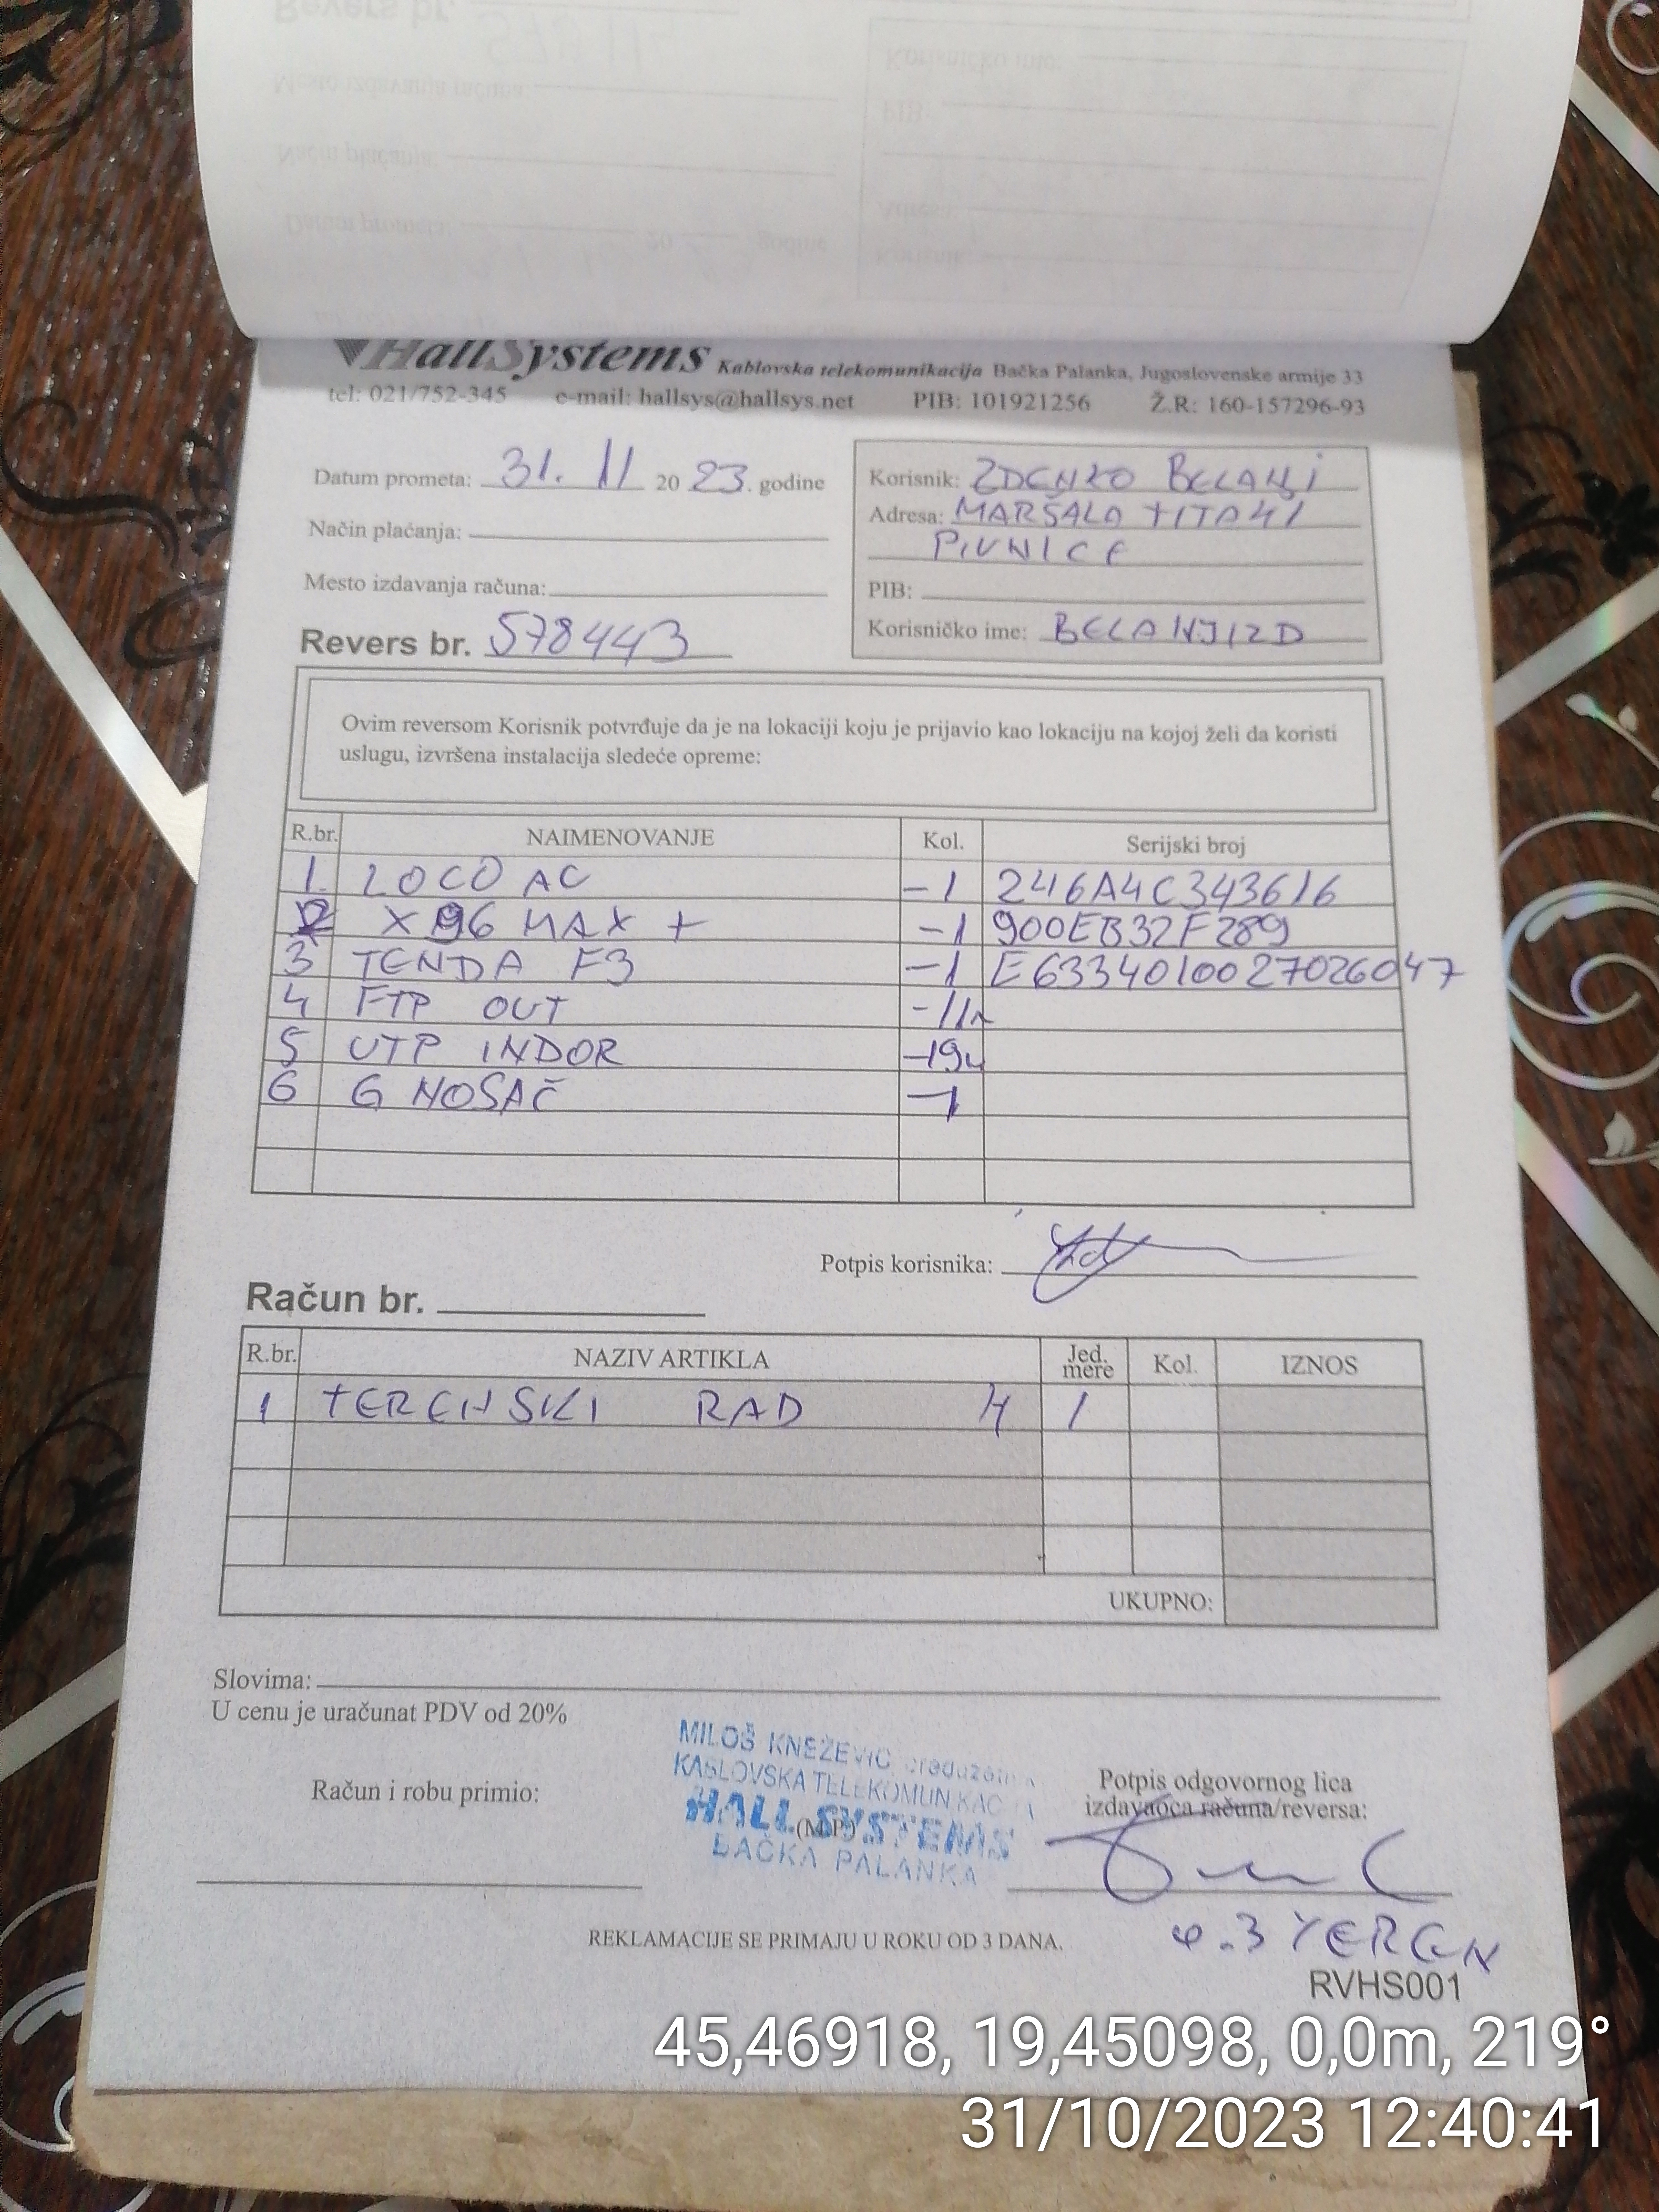 HallSystems Kablovska telekomunikacija Bačka Palanka, Jugoslovenske armije 33
tel: 021/752-345 e-mail: hallsys@hallsys.net PIB: 101921256 Ž.R: 160-157296-93
Datum prometa: 31. 11 20 23. godine
Način plaćanja:
Mesto izdavanja računa:
Revers br. 578443
Korisnik: ZDENKO BELANJI
Adresa: MARŠALA TITA 41
PIVNICE
PIB:
Korisničko ime: BELANJIZD
Ovim reversom Korisnik potvrđuje da je na lokaciji koju je prijavio kao lokaciju na kojoj želi da koristi
uslugu, izvršena instalacija sledeće opreme:
R.br. NAIMENOVANJE Kol. Serijski broj
1. LOCO AC -1 246A4C343616
2 X96 MAX + -1 900EB32F289
3 TENDA F3 -1 E6334010027026047
4 FTP OUT -11m
5 UTP INDOR -19m
6 G NOSAČ -1
Potpis korisnika:
Račun br.
R.br. NAZIV ARTIKLA Jed. mere Kol. IZNOS
1 TERENSKI RAD H 1
UKUPNO:
Slovima:
U cenu je uračunat PDV od 20%
MILOŠ KNEŽEVIĆ preduzetnik
KABLOVSKA TELEKOMUNIKACIJA
HALL SYSTEMS
BAČKA PALANKA
Račun i robu primio:
(M.P.)
Potpis odgovornog lica
izdavaoca računa/reversa:
REKLAMACIJE SE PRIMAJU U ROKU OD 3 DANA.
RVHS001
45,46918, 19,45098, 0,0m, 219°
31/10/2023 12:40:41